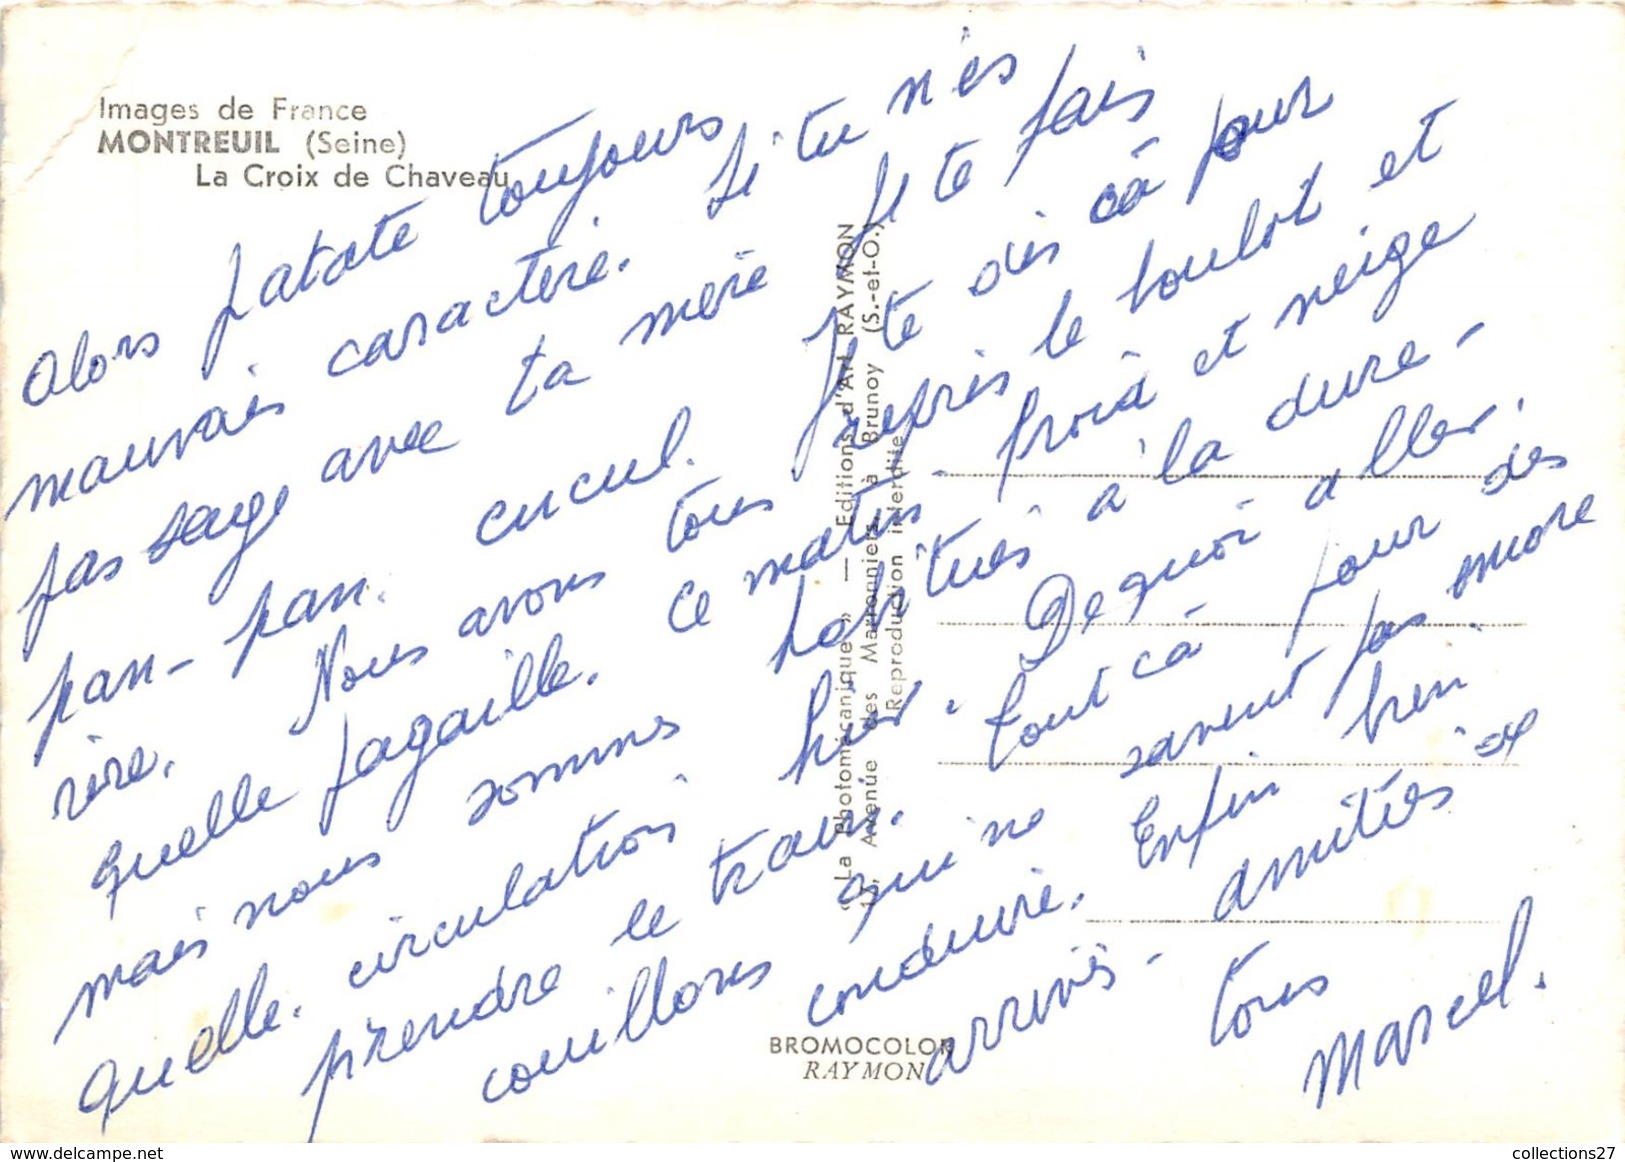 Images de France
MONTREUIL (Seine)
La Croix de Chaveau
Alors patate toujours
mauvais caractère. Si tu n'es
pas sage avec ta mère Je te fais
pan-pan. cucul. Je te dis cà pour
rire. Nous avons tous repris le boulot et
quelle pagaille. Ce matin froid et neige
mais nous sommes habitués à la dure-
quelle. circulation hier. De quoi aller.
prendre le train. tout cà pour des
couillons qui ne savent pas encore
conduire. Enfin bien
arrivés - amitiés à
tous
Marcel.
" La Photomécanique » — Editions d'Art RAYMON
Avenue des Marronniers, à Brunoy (S.-et-O.)
Reproduction interdite
BROMOCOLOR
RAYMON
collections27